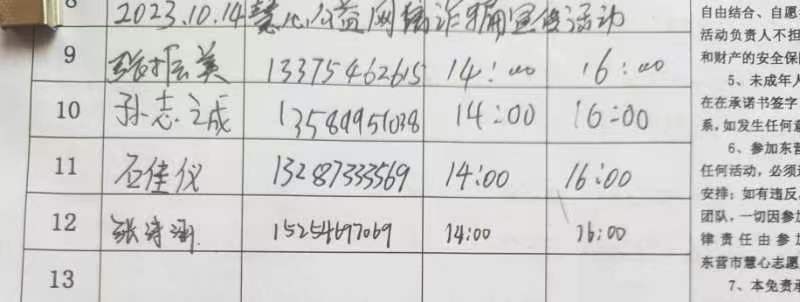 8
2023.10.14慧心公益网络诈骗宣传活动
9 张振美 13375462615 14:00 16:00
10 孙志成 13589951038 14:00 16:00
11 石佳仪 13287333569 14:00 16:00
12 张诗涵 15254697069 14:00 16:00
13
自由结合、自愿
活动负责人不担
和财产的安全保
5、未成年人
在在承诺书签字
系,如发生任何意
6、参加东营
任何活动,必须
安排;如有违反
团队,一切因参加
律责任由参加
东营市慧心志愿
7、本免责